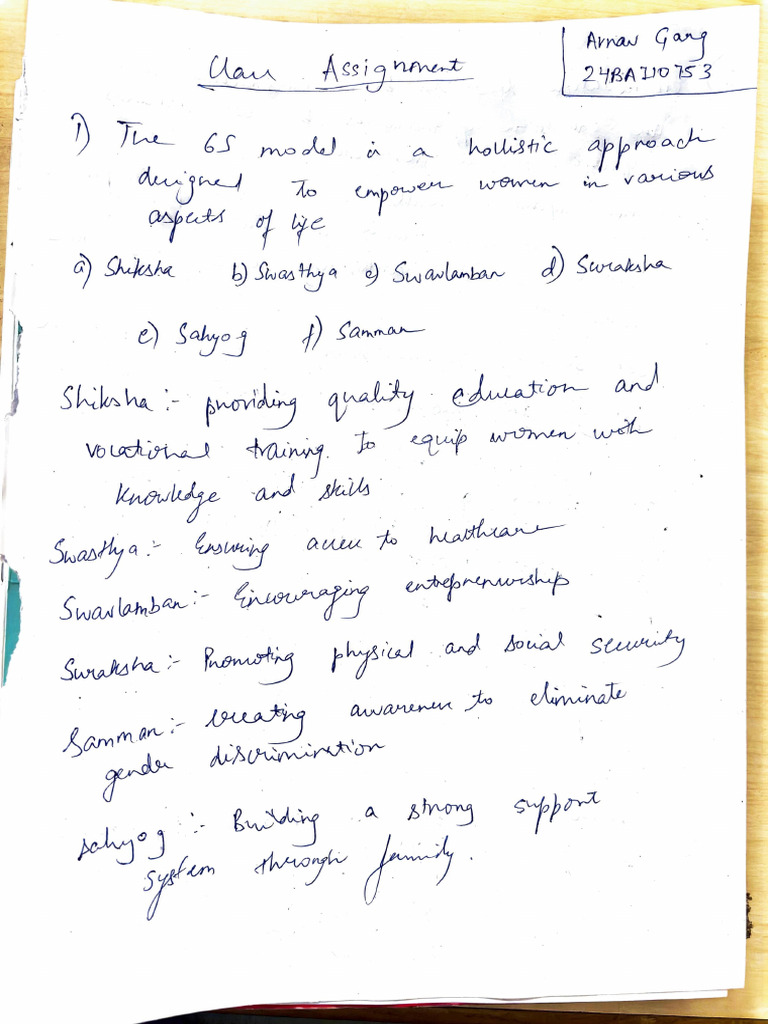 Class Assignment
Arnav Garg
24BAI10753
1) The 6S model is a hollistic approach
designed to empower women in various
aspects of life
a) Shiksha b) Swasthya c) Swavlamban d) Suraksha
e) Sahyog f) Samman
Shiksha :- providing quality education and
vocational training to equip women with
knowledge and skills.
Swasthya :- Ensuring access to healthcare
Swavlamban :- Encouraging entreprenurship
Suraksha :- Promoting physical and social security
Samman :- Creating awareness to eliminate
gender discrimination
Sahyog :- Building a strong support
system through family.